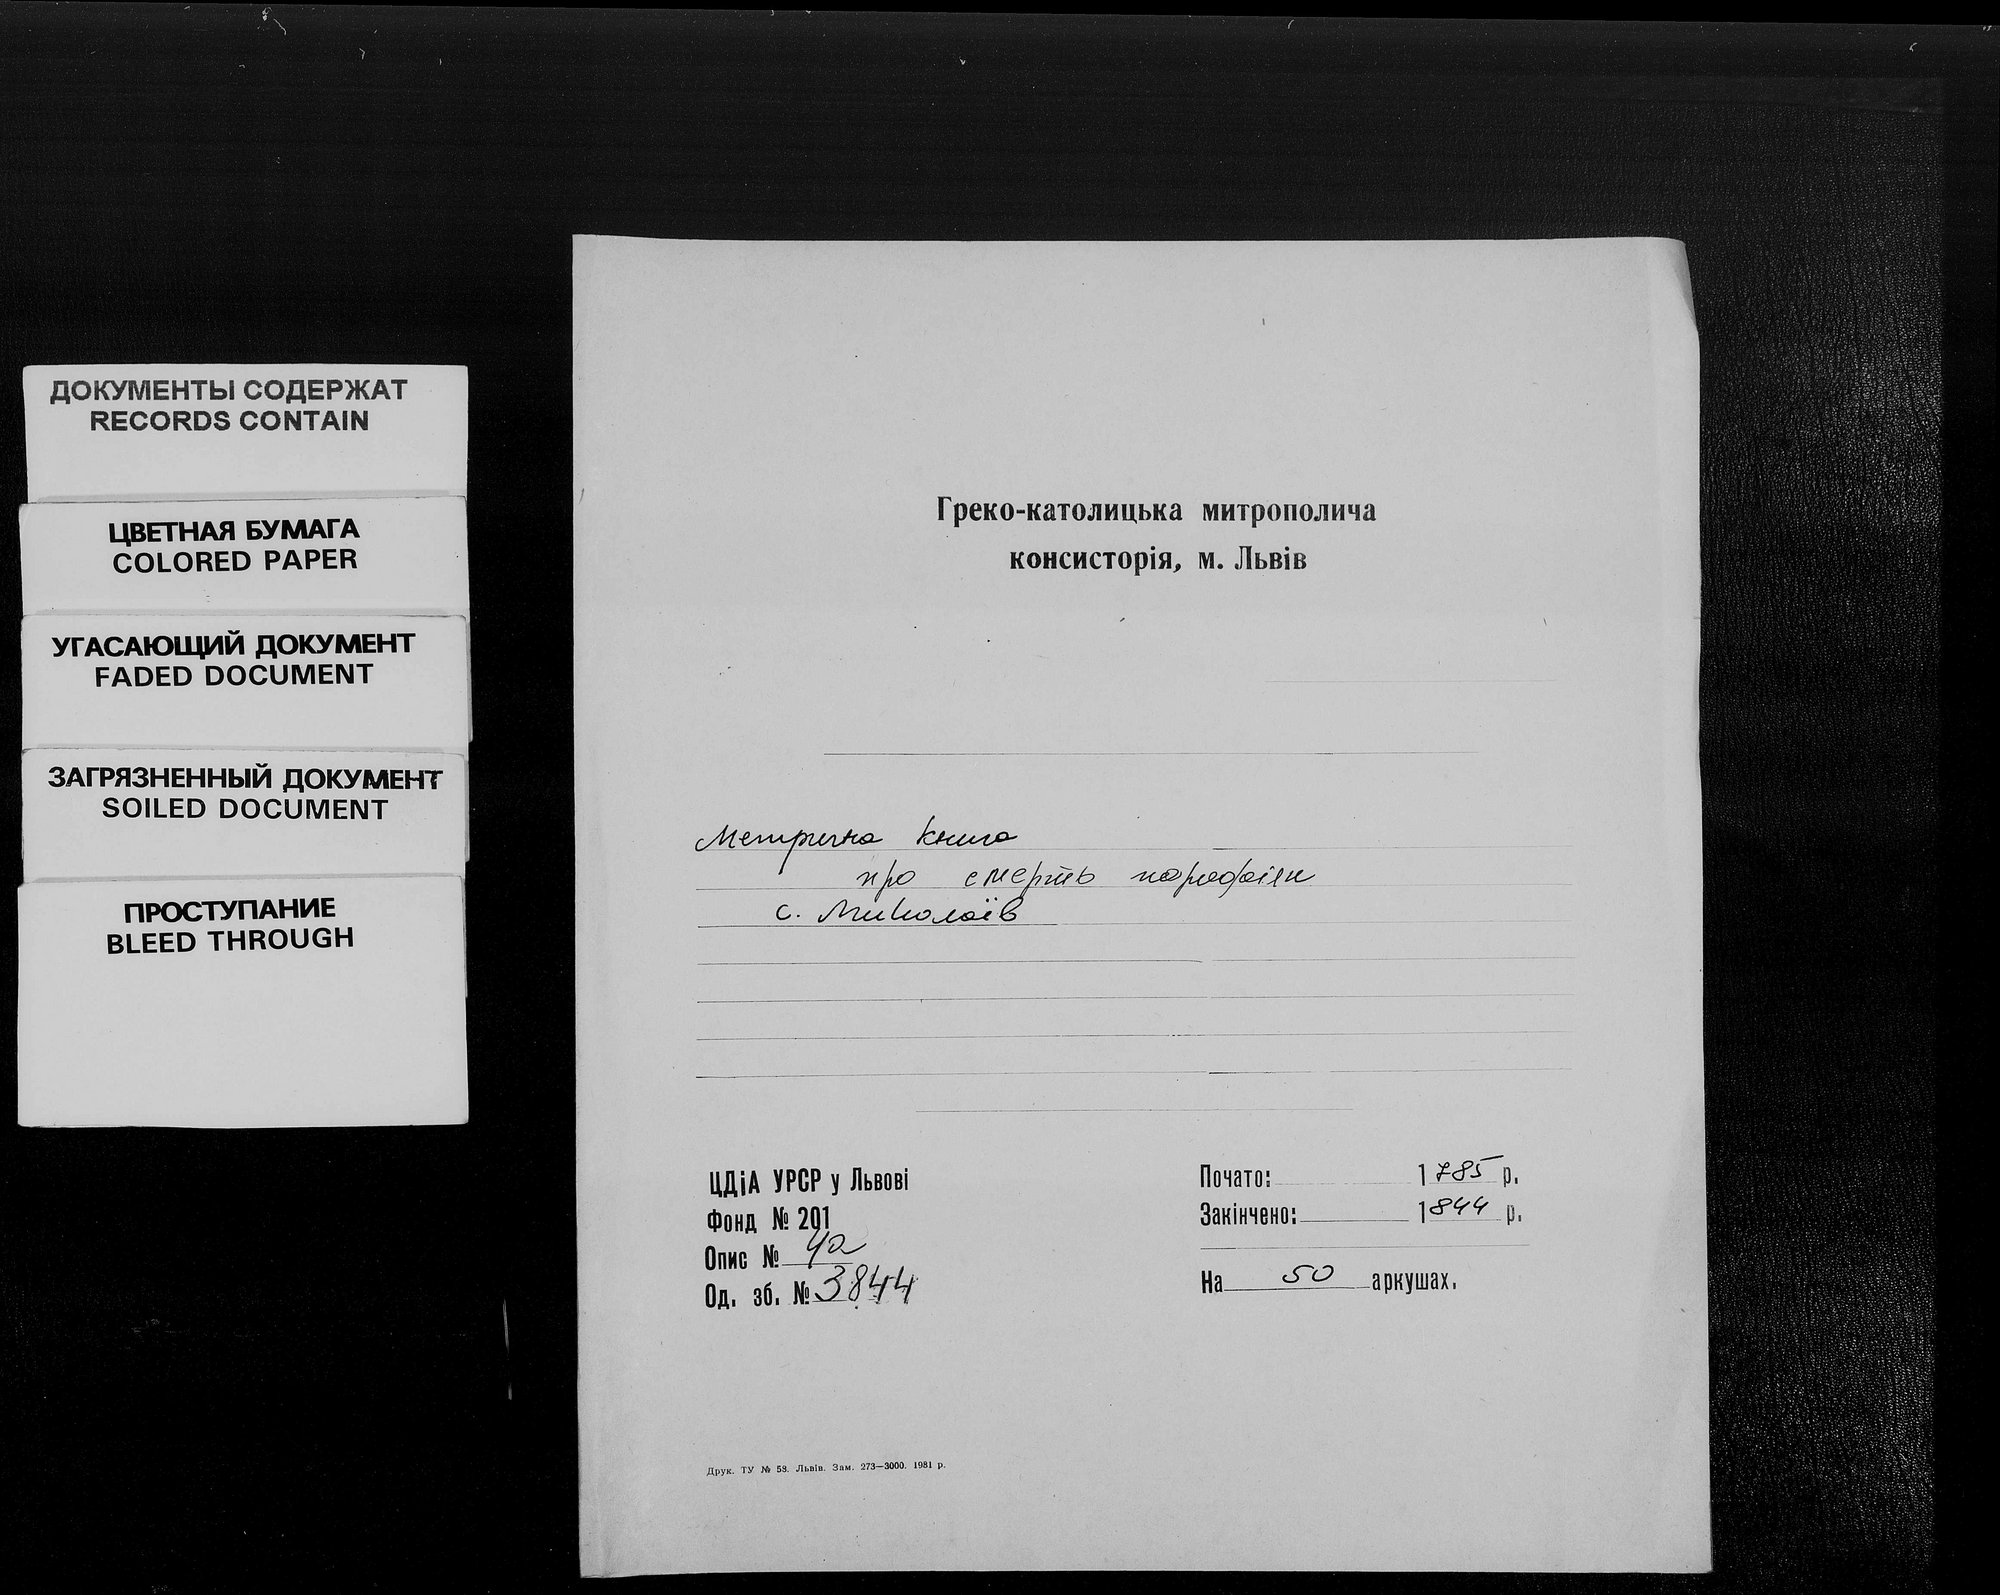 ДОКУМЕНТЫ СОДЕРЖАТ
RECORDS CONTAIN
ЦВЕТНАЯ БУМАГА
COLORED PAPER
УГАСАЮЩИЙ ДОКУМЕНТ
FADED DOCUMENT
ЗАГРЯЗНЕННЫЙ ДОКУМЕНТ
SOILED DOCUMENT
ПРОСТУПАНИЕ
BLEED THROUGH
Греко-католицька митрополича
консисторія, м. Львів
Метрична книга
про смерть парафіян
с. Миколаїв
ЦДіА УРСР у Львові
Фонд № 201
Опис № 4а
Од. зб. № 3844
Почато: 1785 р.
Закінчено: 1844 р.
На 50 аркушах.
Друк. ТУ № 58. Львів. Зам. 273—3000. 1981 р.